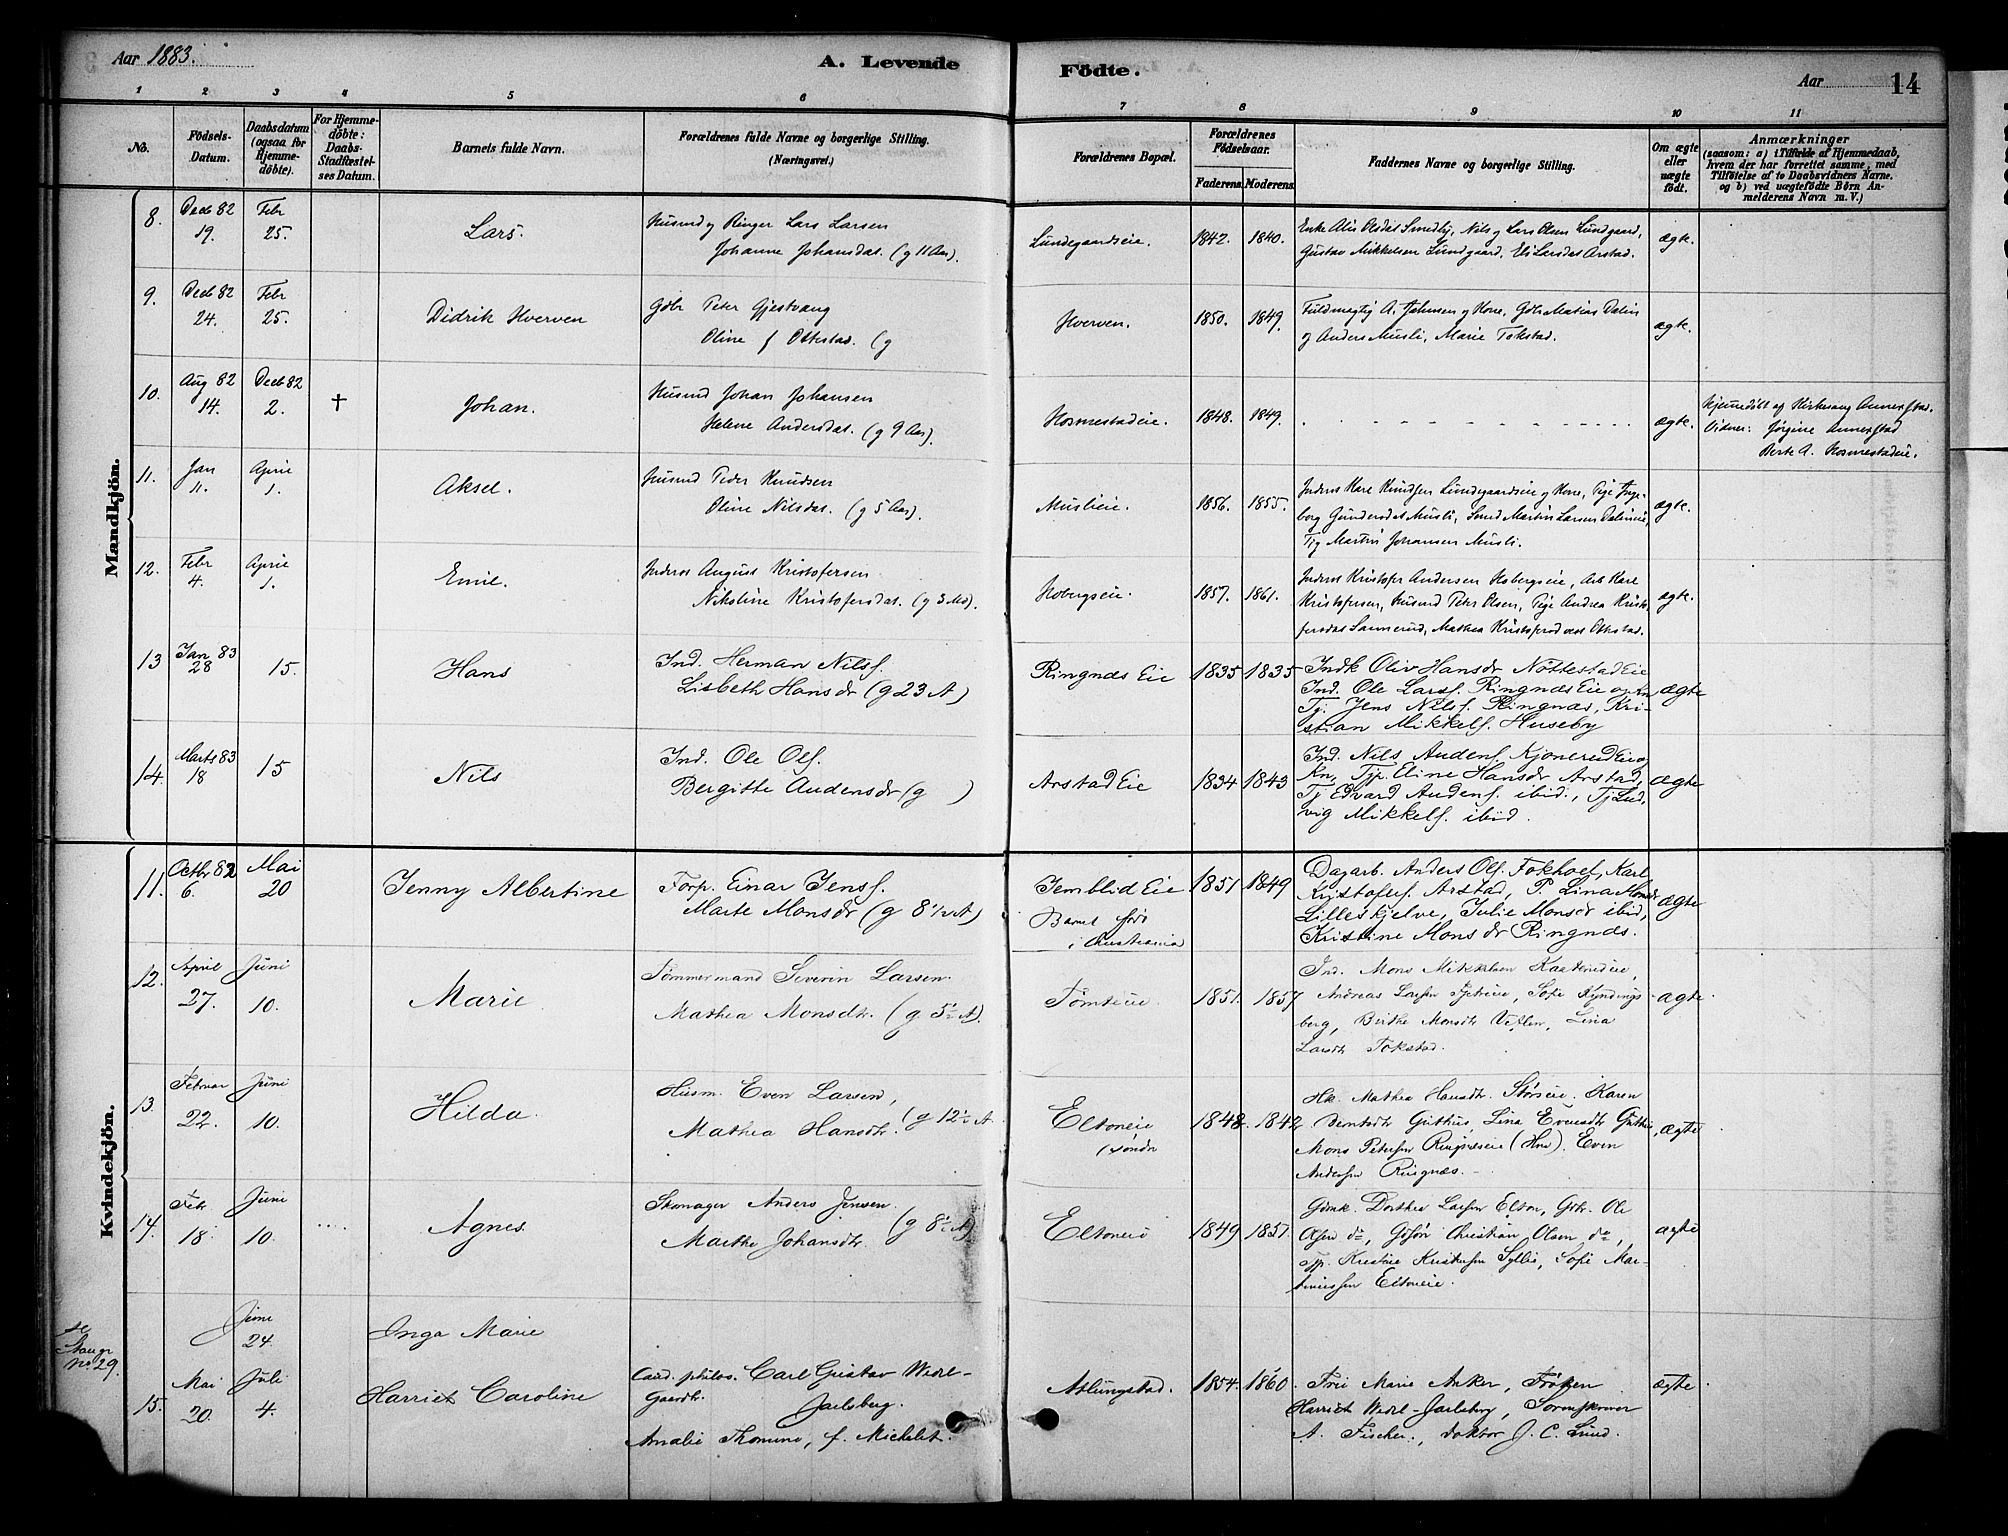 Aar 1883.
A. Levende Födte.
Aar 14
1 2 3 4 5 6 7 8 9 10 11
No.
Födsels-Datum.
Daabsdatum (ogsaa for Hjemme-döbte).
For Hjemme-döbte: Daabs-Stadfæstelses Datum.
Barnets fulde Navn.
Forældrenes fulde Navne og borgerlige Stilling.
(Næringsvei.)
Forældrenes Bopæl.
Forældrenes Födselsaar.
Faderens. Moderens.
Faddernes Navne og borgerlige Stilling.
Om ægte eller uægte födt.
Anmærkninger
(saasom: a) i Tilfælde af Hjemmedaab, hvem der har forrettet samme, med Tilföielse af to Daabsvidners Navne. og b) ved uægtefödte Börn Anmelderens Navn m. V.)
Mandkjön.
8. Decb 82 19. Febr 25. Lars.
Husmd og Ringer Lars Larsen
Johanne Johansdat. (g 11 Aar).
Lundegaardseie. 1842. 1840.
Enke Alis Olsdat Smedby, Nils og Lars Olsen Lundgaard,
Gustav Mikkelsen Lundgaard, Eli Larsdat Arstad.
ægte.
9. Decb 82 24. Febr 25. Didrik Hverven
Gdbr Peter Gjestvang
Oline f Ottestad. (g
Hverven. 1850. 1849.
Fuldmægtig A. Johnsen og Kone, Gdbr Matias Dælin
og Anders Musli, Marie Tokstad.
ægte.
10. Aug 82 14. Decb 82 2. † Johan.
Husmd Johan Johansen
Helene Andersdat. (g 9 Aar).
Hosmestadeie. 1848. 1849.
ægte.
Hjemmedöbt af Kirkesang. Annexstad.
Vidner: Jørgine Annexstad
Berte A. Hosmestadeie.
11. Jan 11. April 1. Aksel.
Husmd Peder Knudsen
Oline Nilsdat. (g 5 Aar).
Muslieie. 1856. 1855.
Inderst Kare Knudsen Lundegaardseie og Kone, Pige Inge-
borg Gundersdat Musli, Smed Martin Larsen Dælineie,
Tjg Martin Johansen Musli.
ægte.
12. Febr 4. April 1. Emil.
Inderst August Kristofersen
Nikoline Kristofersdat. (g 3 Md).
Hobergseie. 1857. 1861.
Inderst Kristofer Andersen Hobergseie, Arb Kare
Kristofersen, Husmd Peter Olsen, Pige Andrea Kristo-
fersdat Sannerud, Mathea Kristofersd ved Ottestad.
ægte.
13 Jan 83 28 15. Hans
Ind. Herman Nilsf.
Lisbeth Hansdr (g 23 A)
Ringnæs Eie 1835 1835
Indk Oliv Hansdr Nöttestad Eie
Ind. Ole Larsf. Ringnæs Eie og Kn
Tj. Jens Nilsf. Ringnæs, Kri-
stian Mikkelf. Huseby
ægte
14. Marts 83 18 15 Nils
Ind. Ole Olf.
Bergitte Audensdr (g )
Arstad Eie 1834 1843
Ind. Nils Audenf. Kjonerud Eie og
Kn, Tjp. Eline Hansdr Arstad,
Tj Edvard Audenf. ibid., Tj Lud,
vig Mikkelf. ibid.
ægte
Kvindekjön.
11. Octbr 82 6. Mai 20 Jenny Albertine
Forp. Einar Jensf.
Marte Monsdr (g 8 1/2 A)
Jemblid Eie 1851 1849
Barnet født
i Christiania
Dagarb. Anders Olf Fokhoel, Karl
Kristoferf. Arstad, P. Lina Monsdr
Lilleskjelve, Julie Monsdr ibid,
Kristine Monsdr Ringnæs.
ægte
12. April 27. Juni 10. Marie
Tømmermand Severin Larsen
Mathea Monsdtr. (g 5 1/2 A).
Tømteeie 1851. 1857
Ind. Mons Mikkelsen
Andreas Larsen, Sofie Kyndings-
berg, Birthe Monsdtr, Lina
Larsdtr Tokstad.
ægte.
13. Februar 22. Juni 10. Hilda.
Husm. Even Larsen,
Mathea Hansdtr. (g 12 1/2 A.
Eltoneie 1848. 1842
(søndre
Hk. Mathea Hansdtr. Størseie, Karen
Guthus, Lina Evensdtr Guthus,
Mons Petersen Ringnæseie (Hm). Even
Andersen Ringnæs.
ægte
14. Febr. 18. Juni 10. Agnes.
Skomager Anders Jensen.
Marthe Johansdtr. (g 8 1/2 A)
Eltoneie 1849 1851.
Gdmk. Dorthea Larsen Elton, Gbr. Ole
Olsen do, Gdsøn Christian Olsen do,
Tjp. Kristine Kristensen, Sofie Mar-
tinussen Eltoneie.
ægte
Juni 24. Inga Marie
se Stange
No. 29.
15. Mai 20. Juli 4. Harriet Caroline
Cand. philos. Carl Gustav Wedel-
Gaardbr. Jarlsberg.
Amalie Thomine, f. Michelet.
Atlungstad. 1854. 1860.
Frue Marie Anker, Frøken
Harriet Wedel-Jarlsberg, Sorenskriver
A. Fischer, doktor J. C. Lund.
ægte